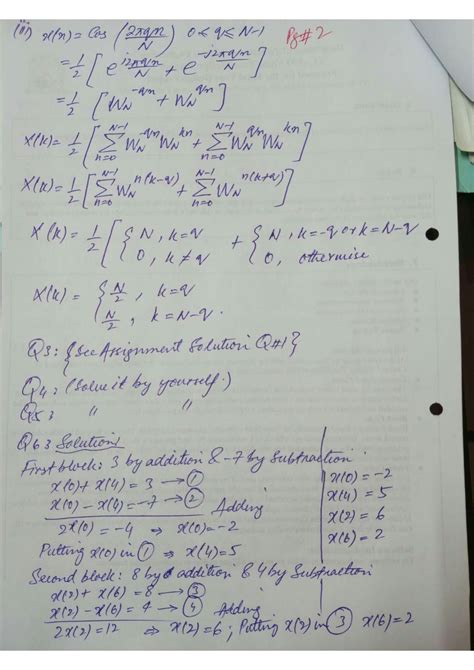 (iii) x(n) = Cos (2πqn/N) 0 ≤ q ≤ N-1
Pg#2
= 1/2 [ e^{j2πqn/N} + e^{-j2πqn/N} ]
= 1/2 [ W_N^{-qn} + W_N^{qn} ]
X(k) = 1/2 [ Σ_{n=0}^{N-1} W_N^{-qn} W_N^{kn} + Σ_{n=0}^{N-1} W_N^{qn} W_N^{kn} ]
X(k) = 1/2 [ Σ_{n=0}^{N-1} W_N^{n(k-q)} + Σ_{n=0}^{N-1} W_N^{n(k+q)} ]
X(k) = 1/2 [ { N, k=q + { N, k=-q or k=N-q
0, k≠q 0, otherwise
X(k) = { N/2, k=q
N/2, k=N-q.
Q3: {See Assignment Solution Q#1}
Q4: (Solve it by yourself.)
Q5: " "
Q6: Solution
First block: 3 by addition & -7 by Subtraction
x(0) + x(4) = 3 → ①
x(0) - x(4) = -7 → ② Adding
2x(0) = -4 ⇒ x(0) = -2
Putting x(0) in ① ⇒ x(4) = 5
x(0) = -2
x(4) = 5
x(2) = 6
x(6) = 2
Second block: 8 by addition & 4 by Subtraction
x(2) + x(6) = 8 → ③
x(2) - x(6) = 4 → ④ Adding
2x(2) = 12 ⇒ x(2) = 6; Putting x(2) in ③ x(6) = 2